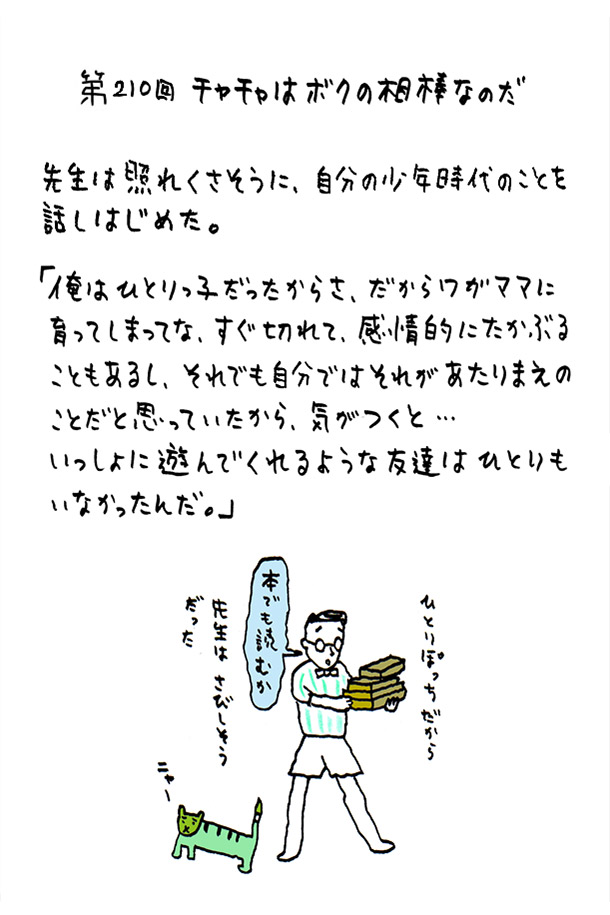 第210回 チャチャはボクの相棒なのだ
先生は照れくさそうに、自分の少年時代のことを
話しはじめた。
「俺はひとりっ子だったからさ、だからワガママに
育ってしまってな、すぐ切れて、感情的にたかぶる
こともあるし、それでも自分ではそれがあたりまえの
ことだと思っていたから、気がつくと…
いっしょに遊んでくれるような友達はひとりも
いなかったんだ。」
ひとりぼっちだから
本でも読むか
先生はさびしそう
だった
ニャー